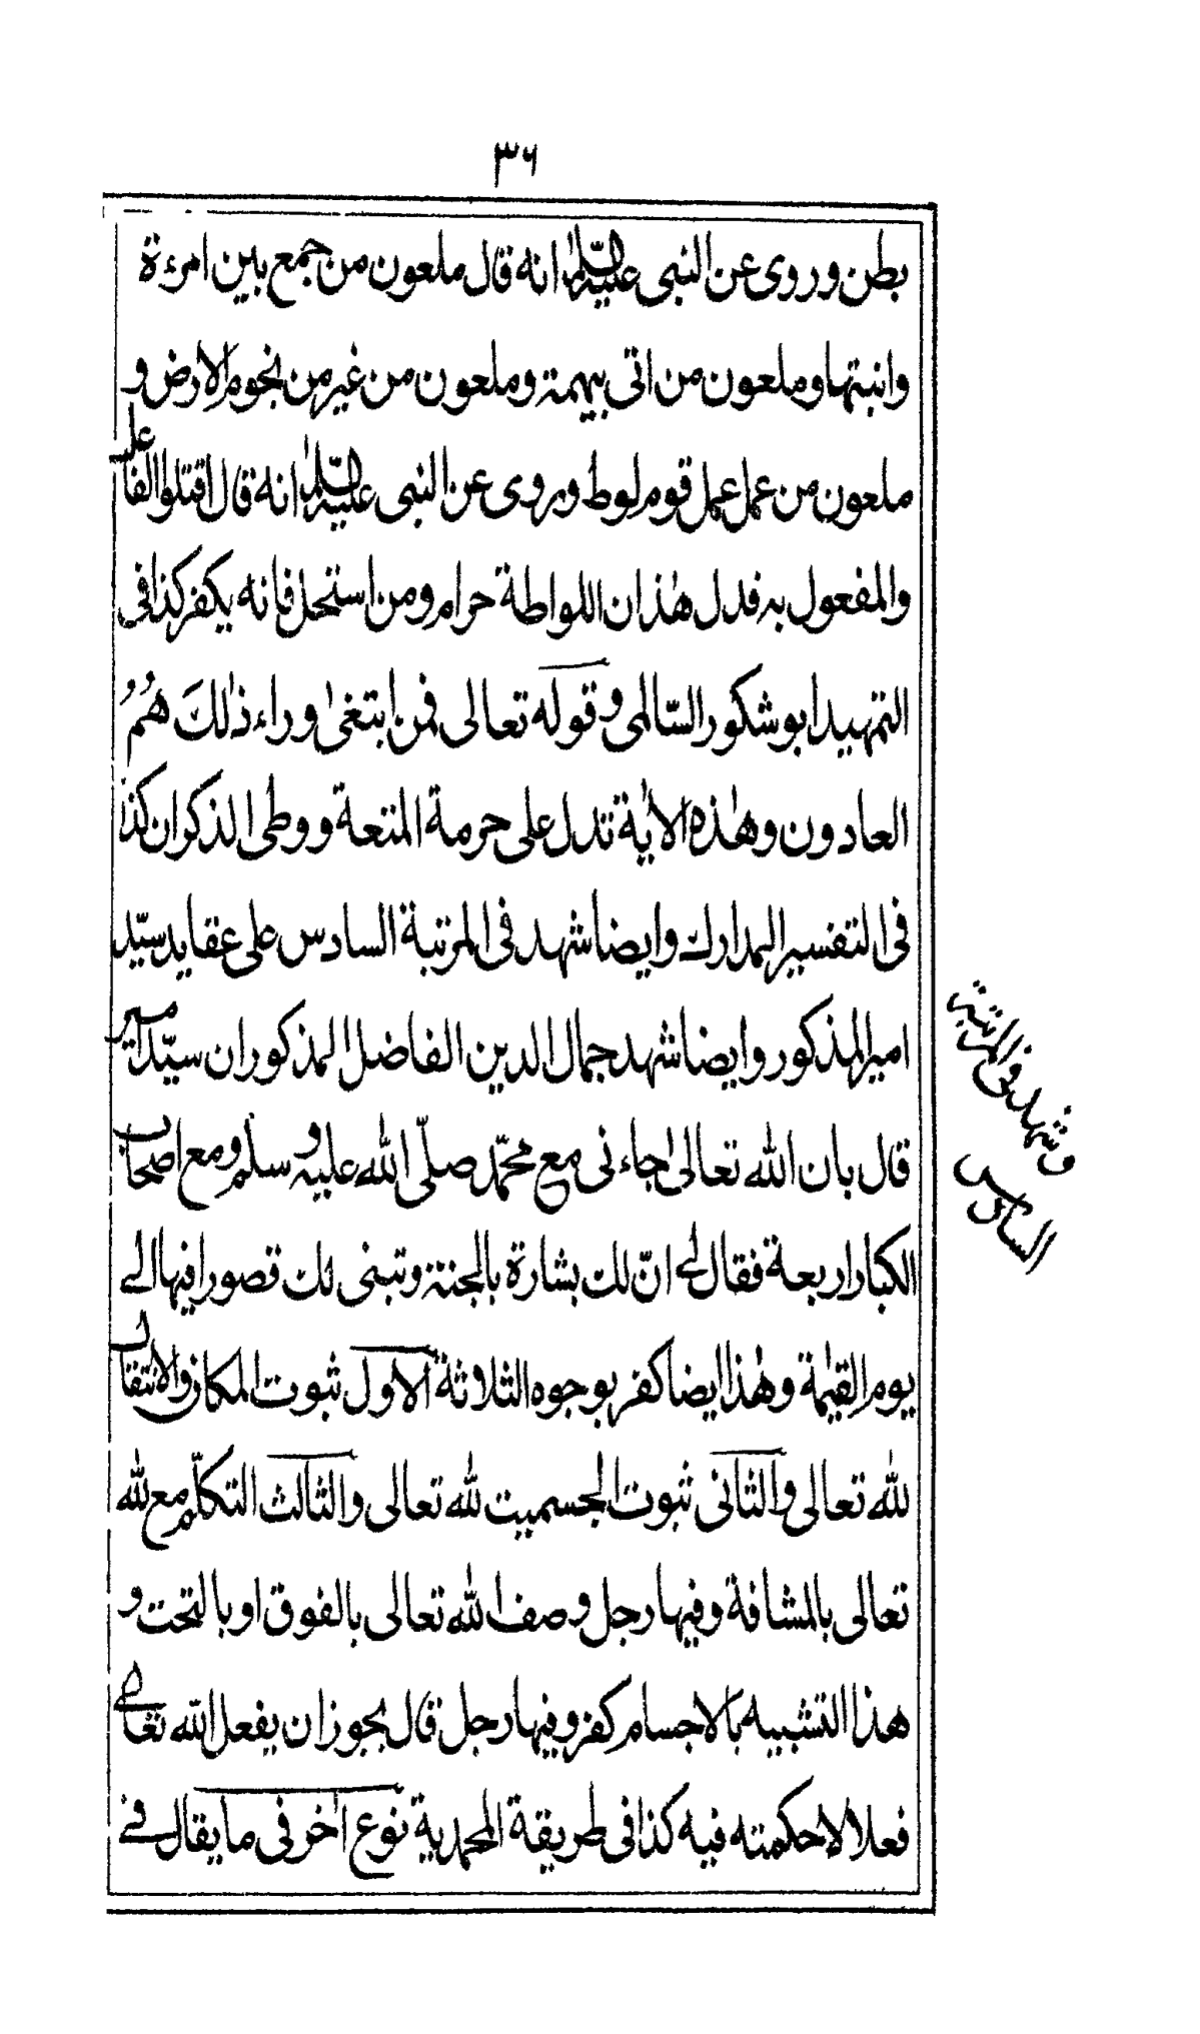 ٣٦
بطن وروى عن النبى عليه السّلام انه قال ملعون من جمع بين امرءة
وابنتها وملعون من اتى بهيمة وملعون من غير من نجوم الارض و
ملعون من عمل عمل قوم لوط وروى عن النبى عليه السّلام انه قال اقتلوا الفاعل
والمفعول به فدل هٰذا ان اللواطة حرام ومن استحل فانه يكفر كذا فى
التمهيد ابو شكور السّالمى وقوله تعالى فمن ابتغىٰ وراء ذٰلكَ هُمُ
العادون وهٰذه الاٰية تدل على حرمة المتعة ووطى الذكران كذا
فى التفسير المدارك وايضا شهد فى المرتبة السادس على عقايد سيّد
امير المذكور وايضا شهد جمال الدين الفاضل المذكور ان سيّد امير
قال بان الله تعالىٰ جاءنى مع محمّد صلّى الله عليه وسلم ومع اصحاب
الكبار اربعة فقال لى انّ لك بشارة بالجنة وتبنى لك قصورا فيها الى
يوم القيٰمة وهٰذا ايضا كفر بوجوه الثلاثة الاول ثبوت المكان والانتقال
لله تعالى والثانى ثبوت الجسميت لله تعالى والثالث التكلّم مع لله
تعالى بالمشافة وفيها رجل وصف الله تعالى بالفوق او بالتحت و
هذا التشبيه بالاجسام كفر وفيها رجل قال يجوز ان يفعل الله تعالى
فعلا لا حكمته فيه كذا فى طريقة المحمدية نوع اٰخر فى ما يقال فى
وشهد فى المرتبة
السادس